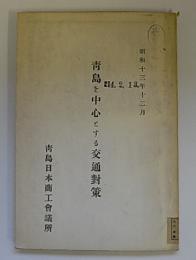 昭和十三年十二月
靑島を中心とする交通對策
靑島日本商工會議所